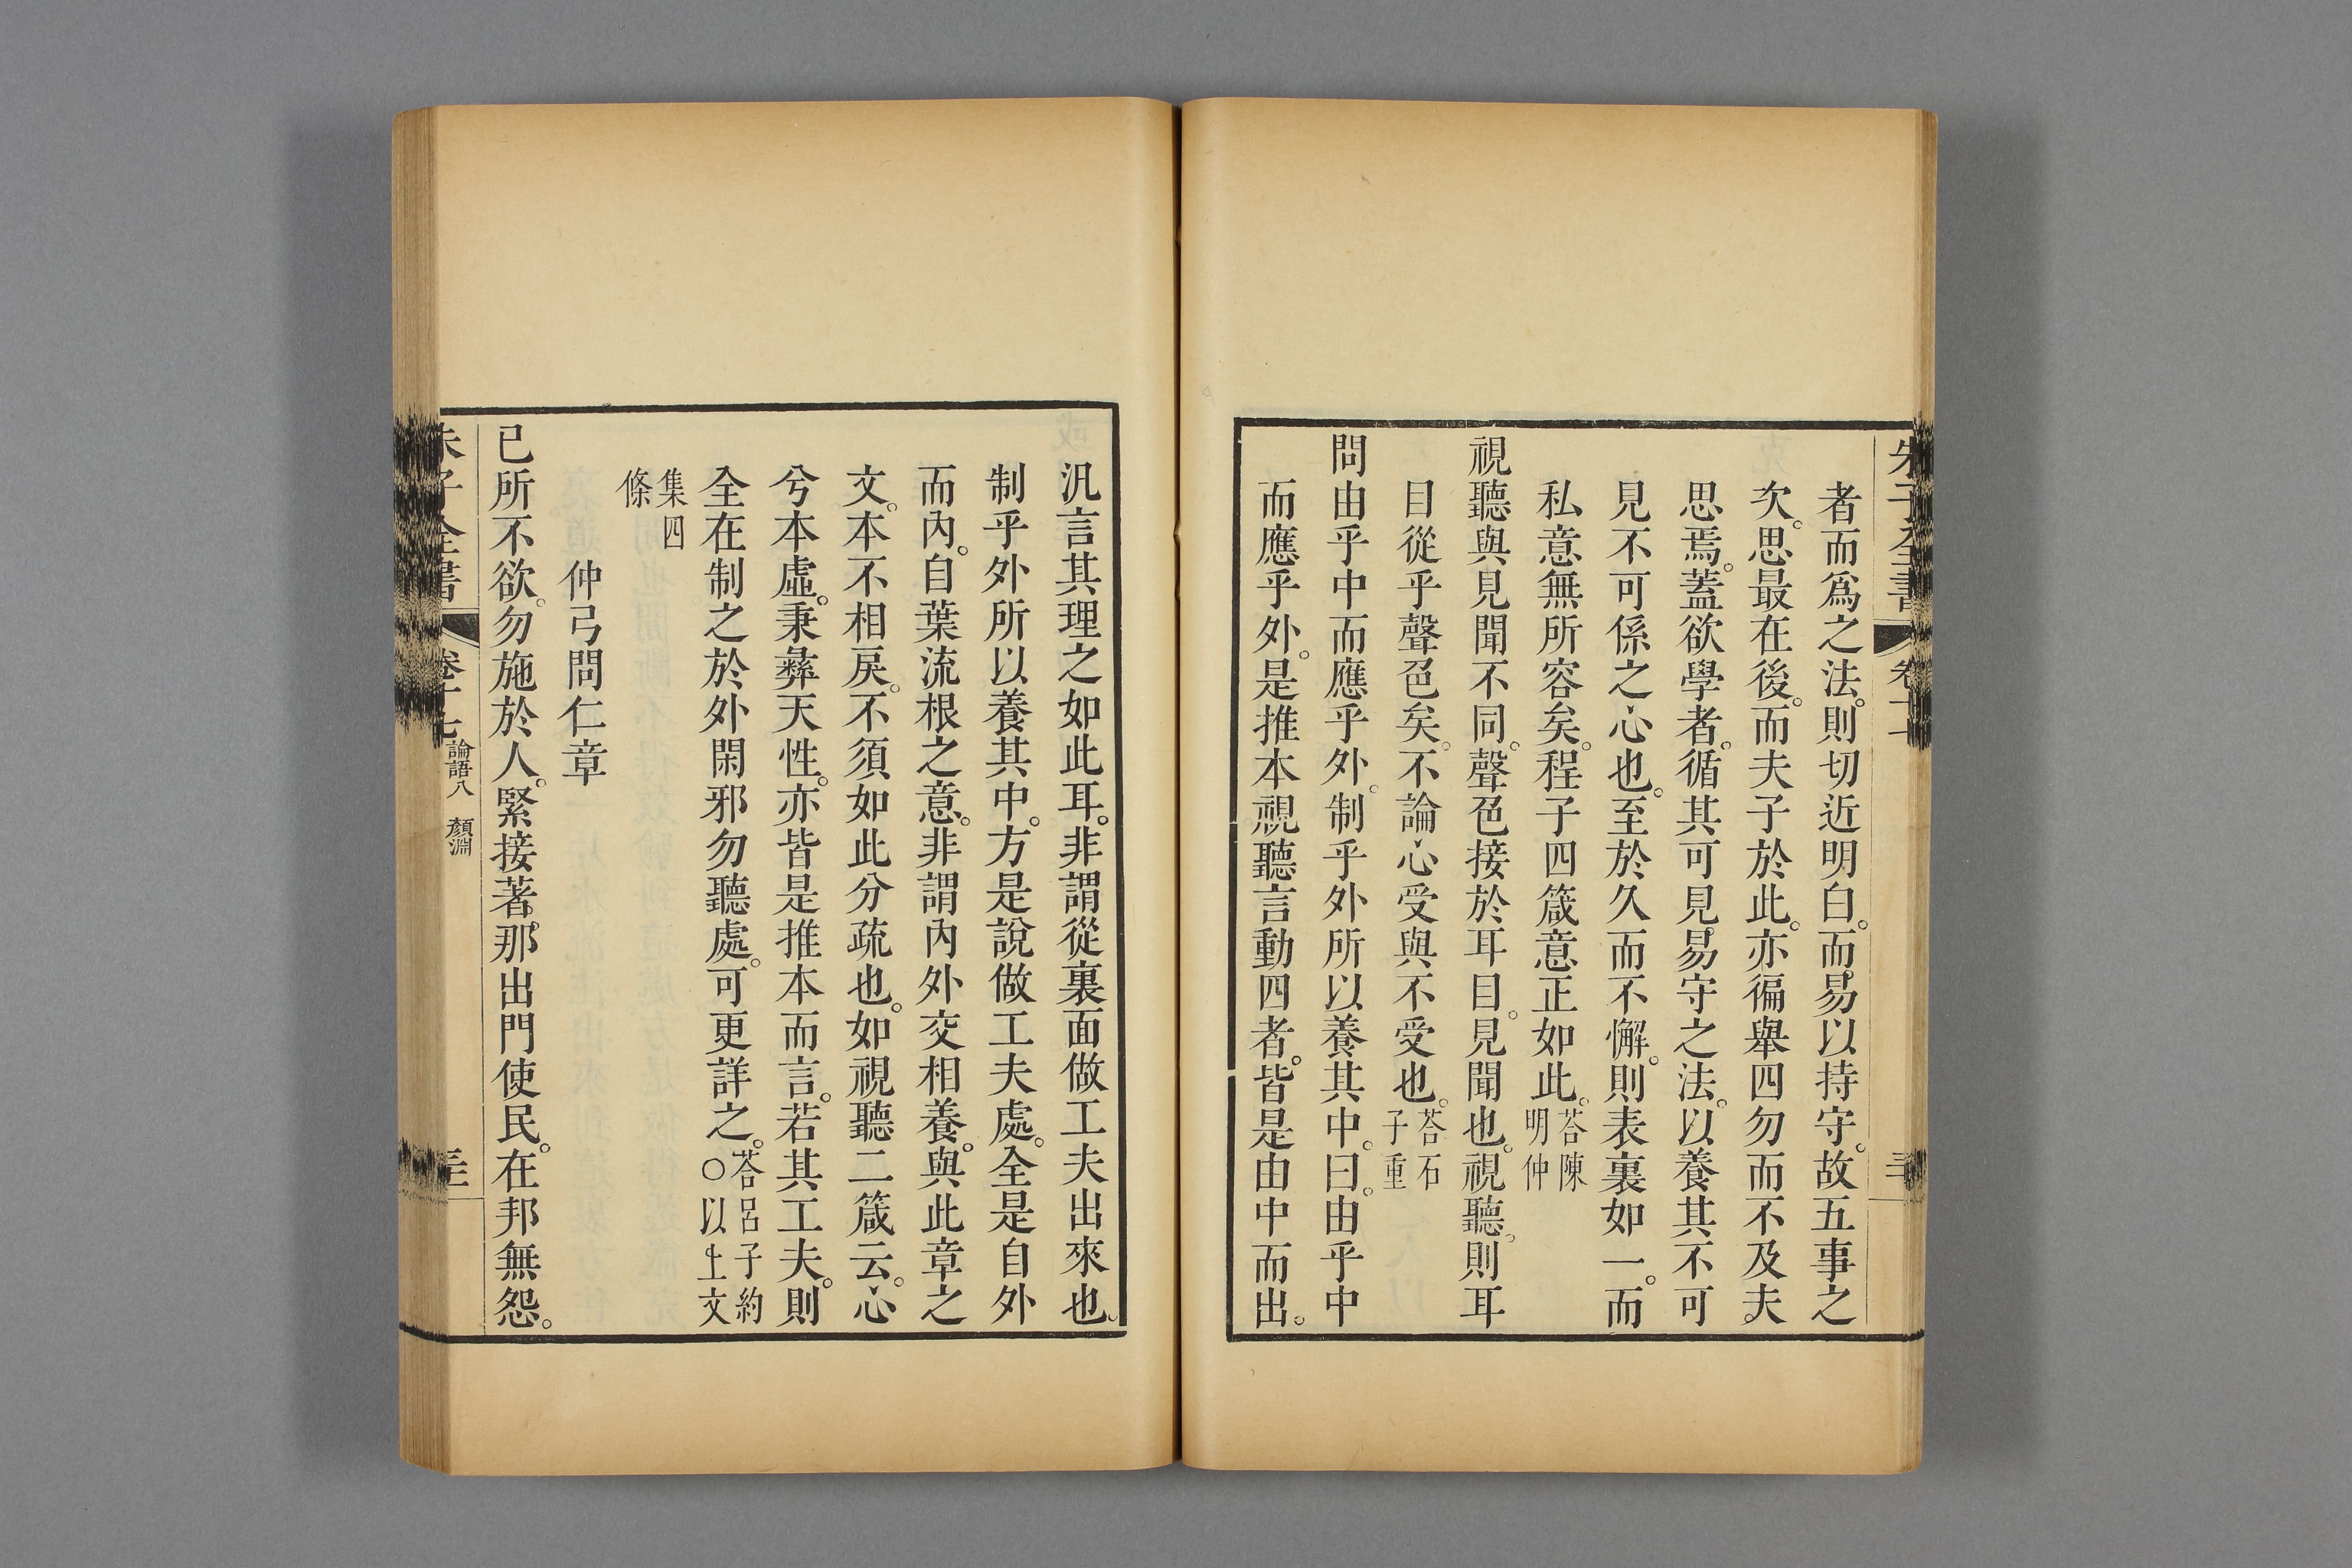 者而爲之法。則切近明白。而易以持守。故五事之
次。思最在後。而夫子於此。亦徧舉四勿而不及夫
思焉。蓋欲學者。循其可見易守之法。以養其不可
見不可係之心也。至於久而不懈。則表裏如一。而
私意無所容矣。程子四箴意正如此。荅陳明仲
視聽與見聞不同。聲色接於耳目。見聞也。視聽。則耳
目從乎聲色矣。不論心受與不受也。荅石子重
問由乎中而應乎外。制乎外所以養其中。曰。由乎中
而應乎外。是推本視聽言動四者。皆是由中而出。
汎言其理之如此耳。非謂從裏面做工夫出來也。
制乎外所以養其中。方是說做工夫處。全是自外
而內。自葉流根之意。非謂內外交相養。與此章之
文。本不相戾。不須如此分疏也。如視聽二箴云。心
兮本虛。秉彝天性。亦皆是推本而言。若其工夫。則
全在制之於外閑邪勿聽處。可更詳之。荅呂子約○以上文
集四條
仲弓問仁章
已所不欲。勿施於人。緊接著。那出門使民。在邦無怨。
朱子全書
卷十七
論語八 顏淵